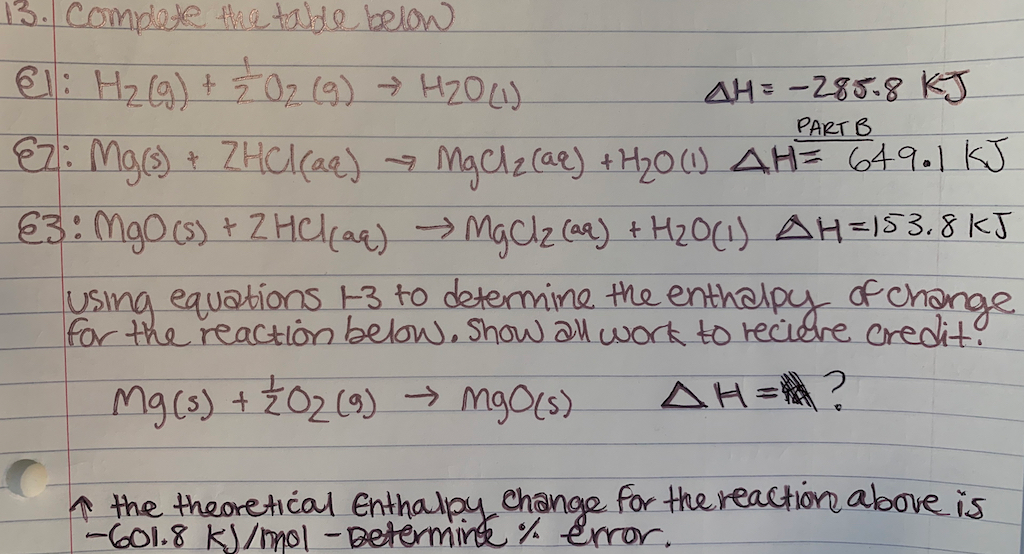 13. Complete the table below
E1: H2(g) + 1/2 O2 (g) → H2O(l) ΔH = -285.8 KJ
PART B
E2: Mg(s) + 2HCl(aq) → MgCl2(aq) + H2O(l) ΔH= 649.1 KJ
E3: MgO(s) + 2HCl(aq) → MgCl2(aq) + H2O(l) ΔH=153.8 KJ
using equations 1-3 to determine the enthalpy of change
for the reaction below. Show all work to recieve credit.
Mg(s) + 1/2 O2(g) → MgO(s) ΔH = ?
↑ the theoretical Enthalpy change for the reaction above is
-601.8 KJ/mol - Determine % error.